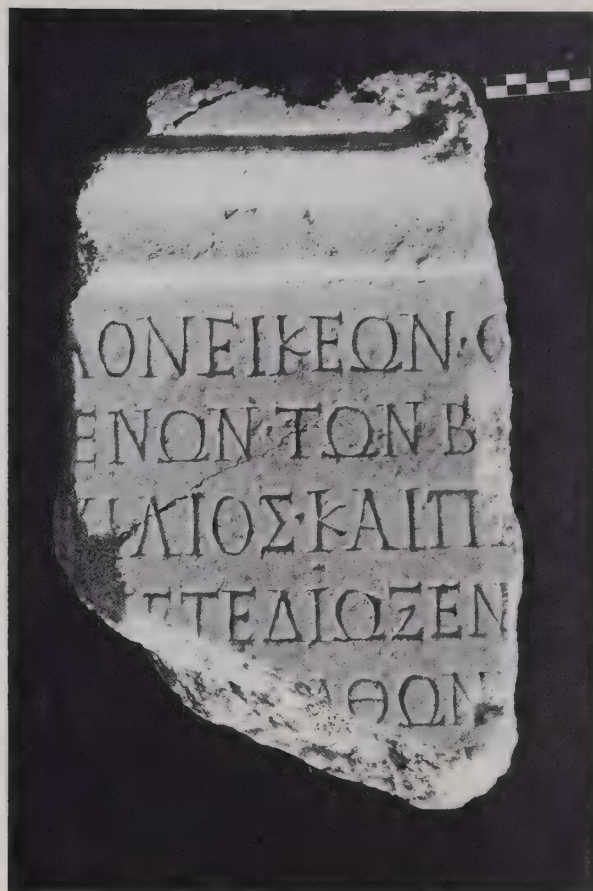 ΛΟΝΕΙΚΕΩΝ·
ΕΝΩΝ·ΤΩΝ Β
ΛΙΟΣ·ΚΑΙΠ
ΤΕΔΙΩΞΕΝ
ΑΘΩΝ